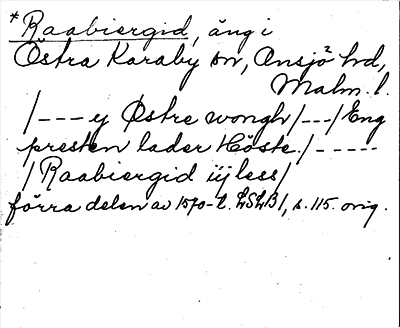 *Raabiergid, äng i
Östra Karaby sn, Onsjö hd,
Malm. l.
/--- y Østre wongh/---/Eng
presten lader Höste./-----
/Raabiergid iij less/
förra delen av 1570-t. LSLB/, s. 115. orig.